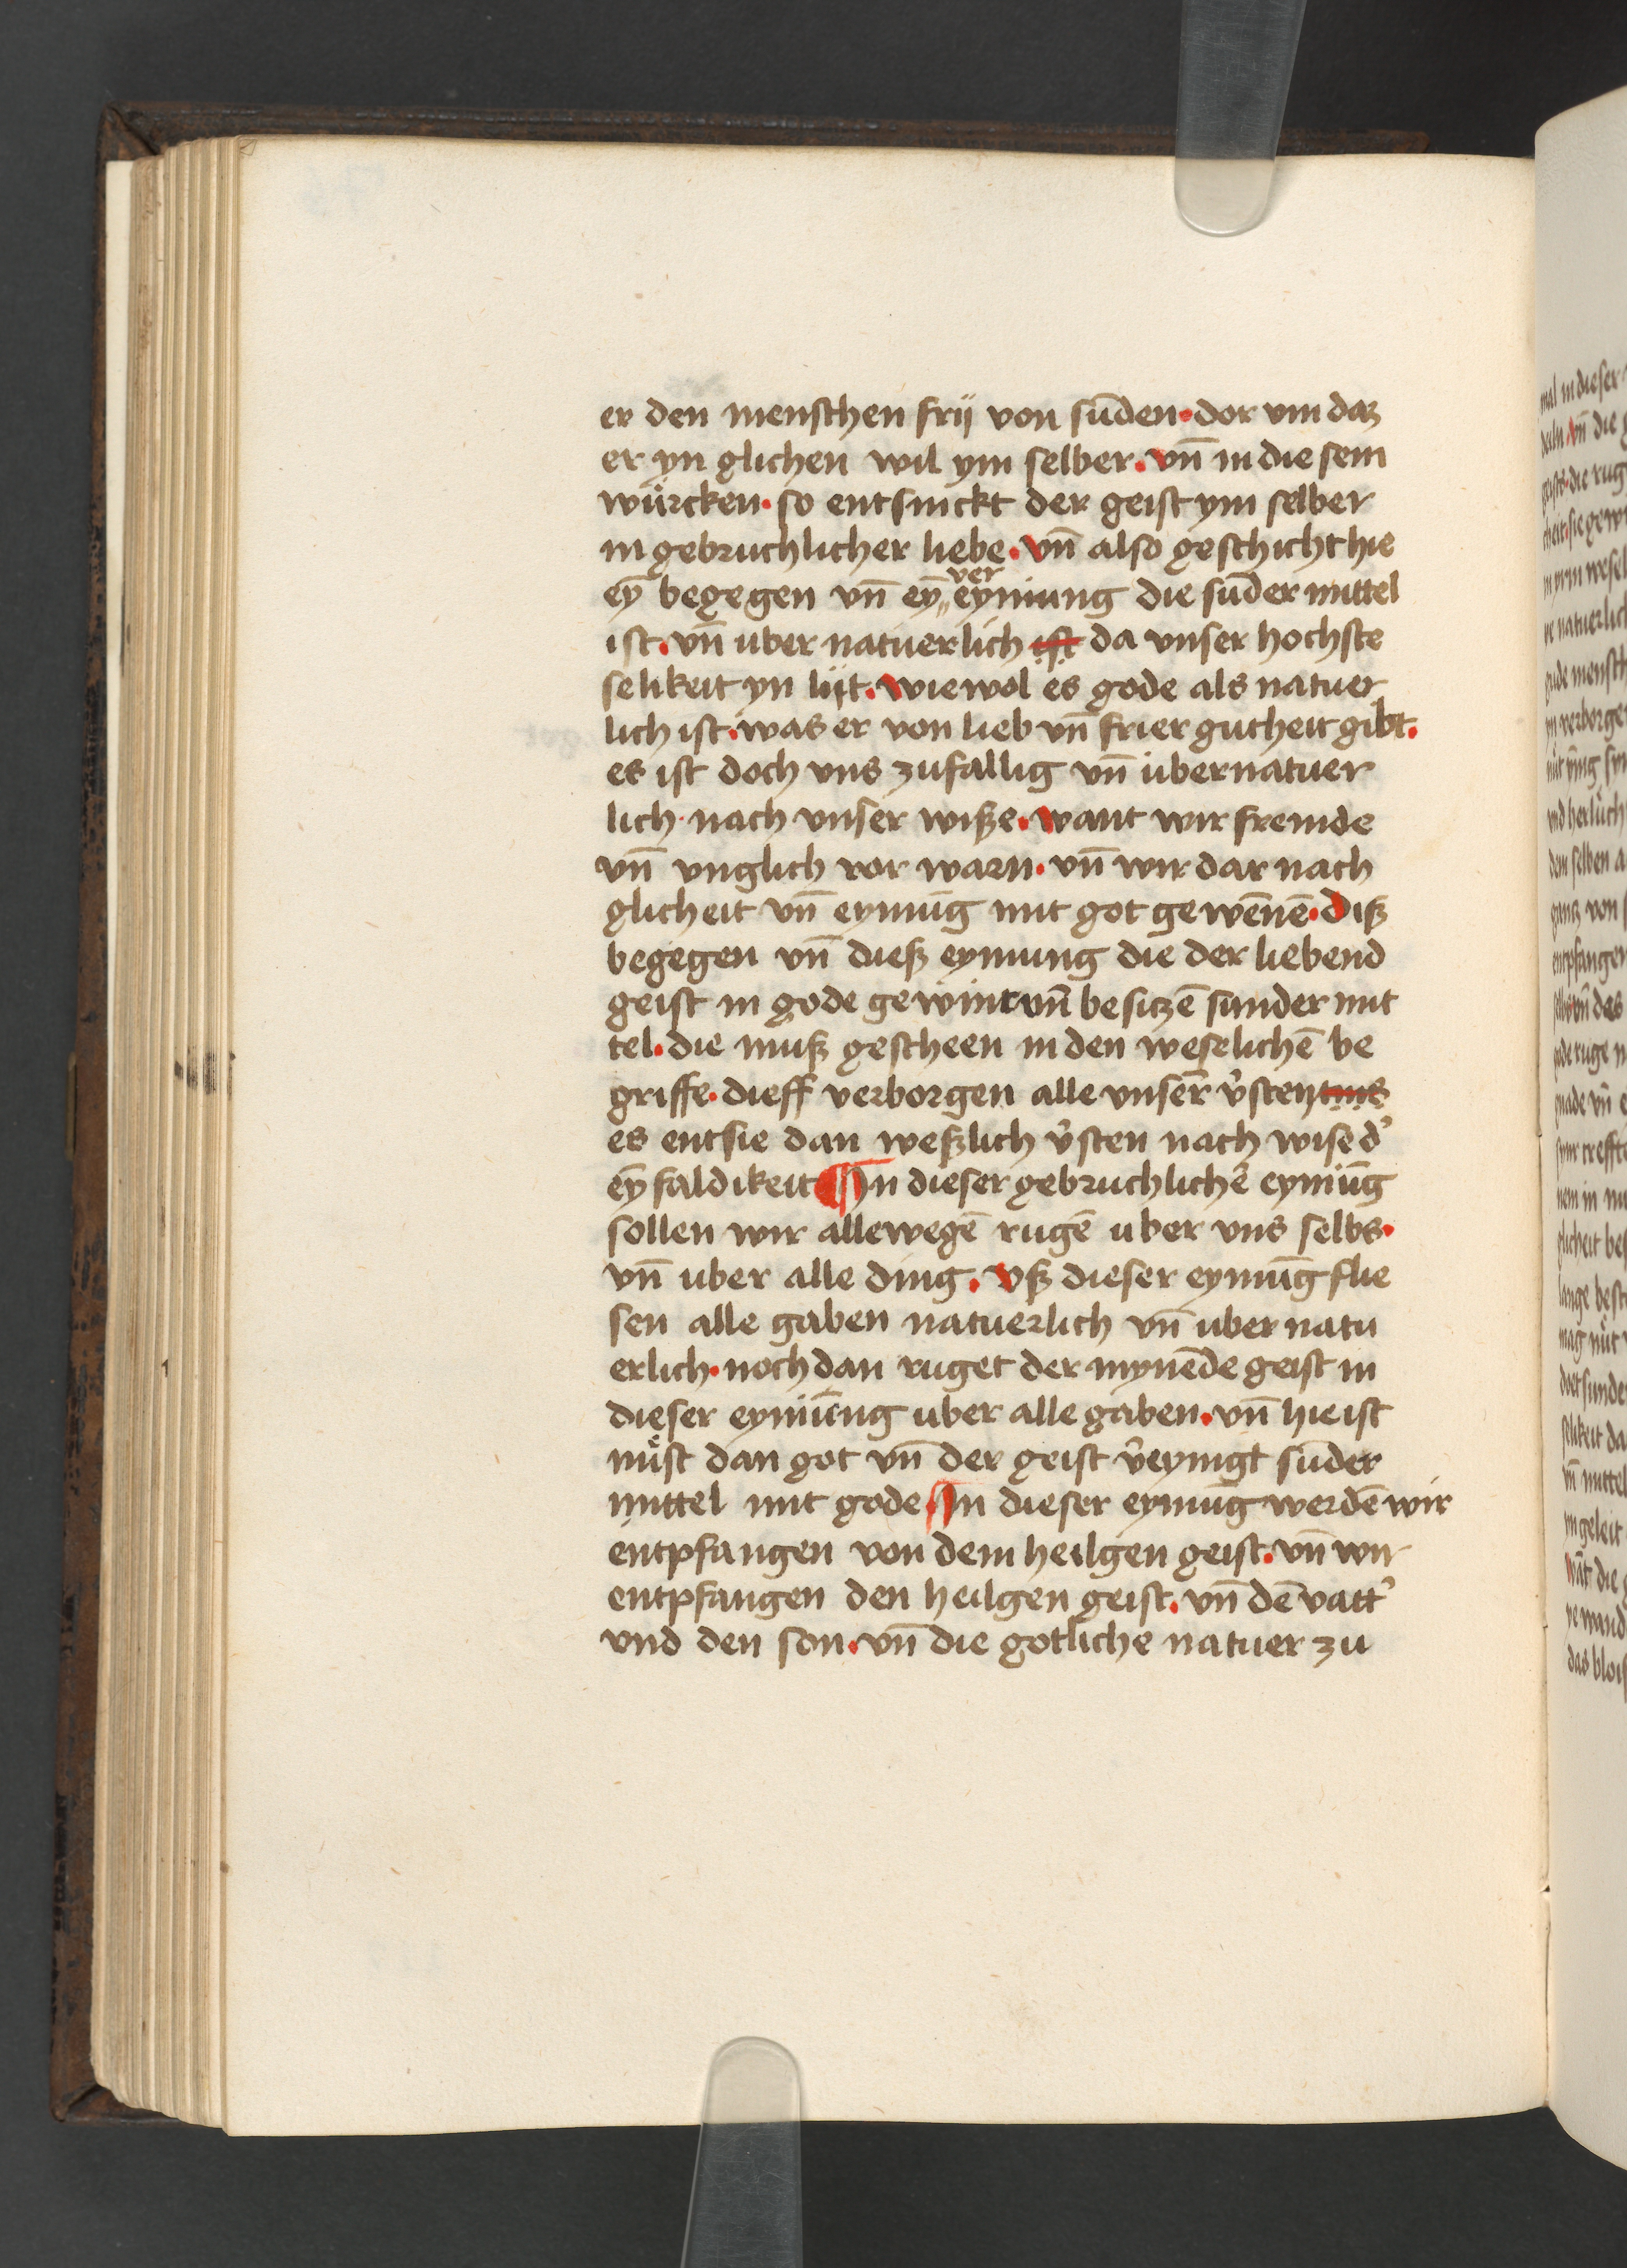 er den menschen frij von sūden · dor vm daz
er yn glichen wil ym selber · vn̄ in die sem
würcken · so entsinckt der geist ym selber
in gebruchlicher liebe · vn̄ also geschicht hie
eȳ begegen vn̄ eȳ vereyniung die sūder mittel
ist · vn̄ uber natuerlich ist da vnser hochste
selikeit yn lijt · wiewol es gode als natuer
lich ist · was er von lieb vn̄ frier gutheit gibt ·
es ist doch vns zufallig vn̄ ubernatuer
lich · nach vnser wiße · want wir fremde
vn̄ vnglich vor warn · vn̄ wir dar nach
glicheit vn̄ eyniūg mit got gewēnē · Diß
begegen vn̄ dieß eyniung die der liebend
geist in gode gewint vn̄ besitzē sunder mit
tel · die muß gescheen in den weselichē be
griffe · dieff verborgen alle vnser v̉stentnis
es entsie dan weßlich v̉sten nach wise d̉
eȳ faldikeit In dieser gebruchlichē eyniūg
sollen wir allewegē rugē uber vns selbs ·
vn̄ uber alle ding · vß dieser eyniūg flie
sen alle gaben natuerlich vn̄ uber natu
erlich · noch dan ruget der mynēde geist in
dieser eyniūng uber alle gaben · vn̄ hie ist
nuͤst dan got vn̄ der geist v̉eynigt sūder
mittel mit gode In dieser eyniūg werdē wir
entpfangen von dem heilgen geist · vn̄ wir
entpfangen den heilgen geist · vn̄ dē vatt̉
vnd den son · vn̄ die gotliche natuer zu